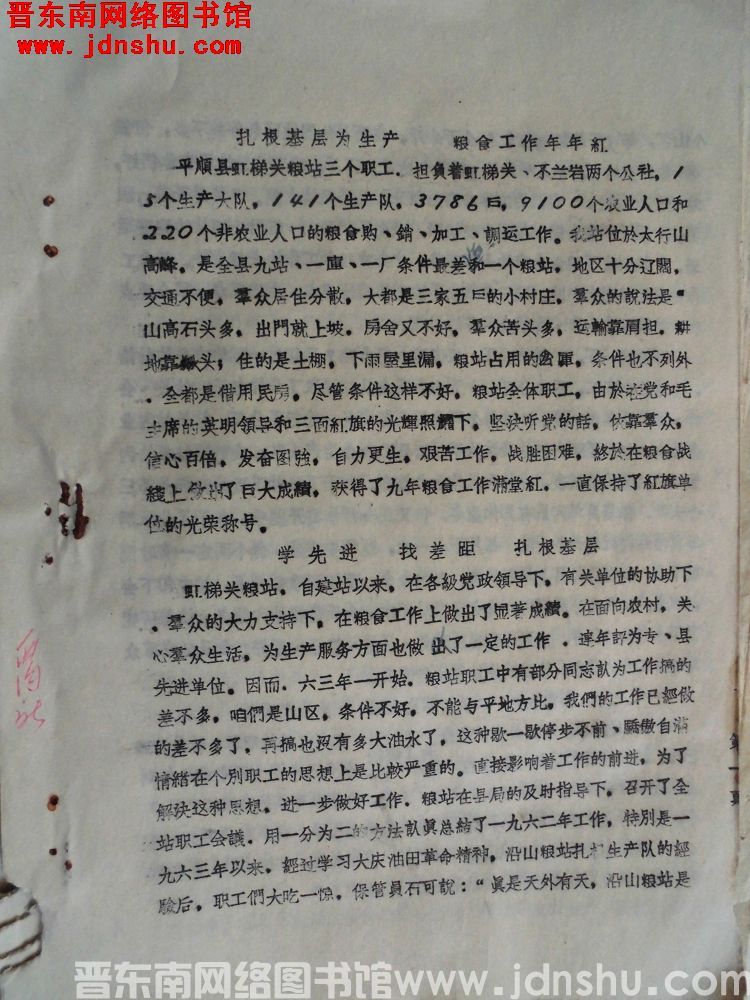 晋东南网络图书馆
www.jdnshu.com
扎根基层为生产 粮食工作年年紅
平順县虹梯关粮站三个职工．担負着虹梯关、不兰岩两个公社，1
5个生产大队，141个生产队，3786户，9100个农业人口和
220个非农业人口的粮食购、銷、加工、調运工作。我站位於太行山
高峰，是全县九站、一庫、一厂条件最差和一个粮站，地区十分辽闊，
交通不便，羣众居住分散，大都是三家五户的小村庄，羣众的說法是“
山高石头多，出門就上坡。房舍又不好，羣众苦头多，运輸靠肩担，耕
地靠头；住的是土棚，下雨屋里漏，粮站占用的倉庫，条件也不列外
．全都是借用民房，尽管条件这样不好，粮站全体职工，由於在党和毛
主席的英明領导和三面紅旗的光輝照耀下，坚决听党的話，依靠羣众，
信心百倍，发奋图強，自力更生，艰苦工作，战胜困难，終於在粮食战
綫上做出了巨大成績，获得了九年粮食工作滿堂紅，一直保持了紅旗单
位的光荣称号。
学先进 找差距 扎根基层
虹梯关粮站，自建站以来，在各級党政領导下，有关单位的协助下
．羣众的大力支持下，在粮食工作上做出了显著成績。在面向农村，关
心羣众生活，为生产服务方面也做出了一定的工作．連年評为专、县
先进单位。因而．六三年一开始，粮站职工中有部分同志認为工作搞的
差不多，咱們是山区，条件不好，不能与平地方比，我們的工作已經做
的差不多了，再搞也沒有多大油水了，这种歇一歇停步不前、驕傲自滿
情緒在个別职工的思想上是比較严重的。直接影响着工作的前进，为了
解决这种思想，进一步做好工作．粮站在县局的及时指导下，召开了全
站职工会議．用一分为二的方法認眞总結了一九六二年工作，特別是一
九六三年以来，經过学习大庆油田革命精神，沿山粮站扎根生产队的經
驗后，职工們大吃一惊，保管員石可說：“眞是天外有天，沿山粮站是
第一頁
晋东南网络图书馆www.jdnshu.com